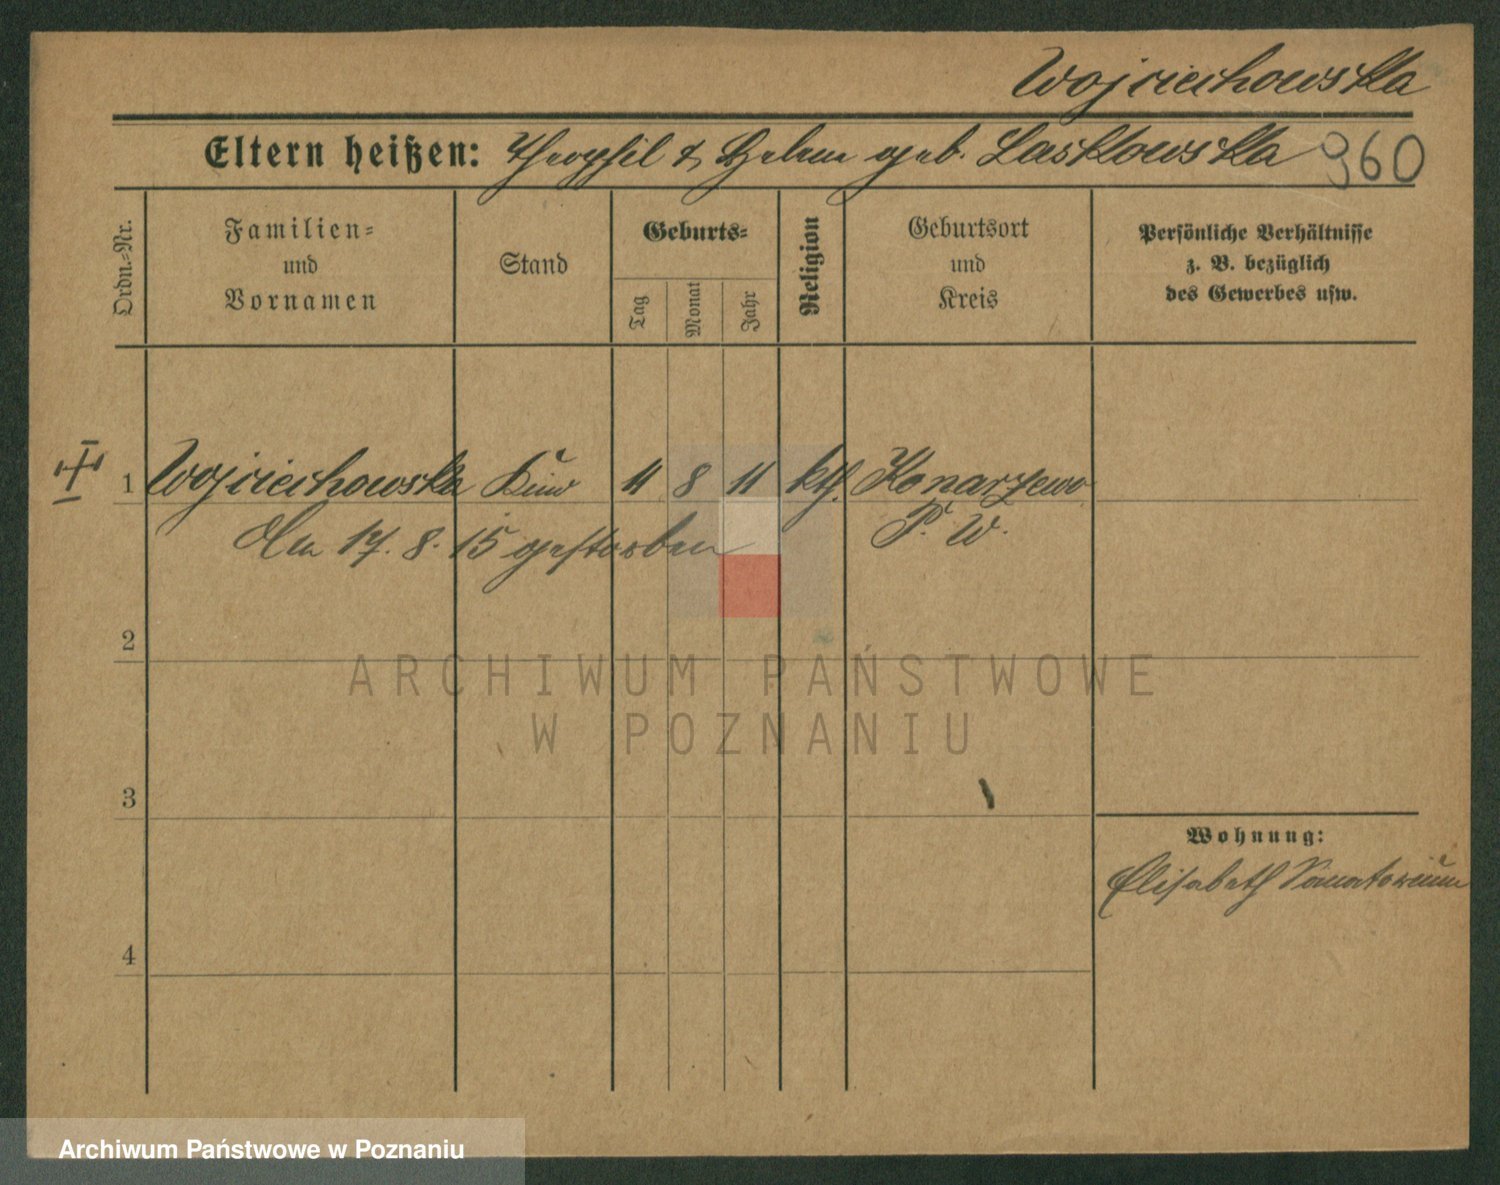 Wojciechowska
Eltern heißen: Theophil & Helene geb. Laskowska 960
Ordn.-Nr.
Familien-
und
Vornamen
Stand
Geburts-
Tag
Monat
Jahr
Religion
Geburtsort
und
Kreis
Persönliche Verhältnisse
z. B. bezüglich
des Gewerbes usw.
1 Wojciechowska Kind 11 8 11 kth. Konarzewo
P. W.
Am 17. 8. 15 gestorben
2
3
4
Wohnung:
Elisabeth Sanatorium
ARCHIWUM PAŃSTWOWE
W POZNANIU
Archiwum Państwowe w Poznaniu